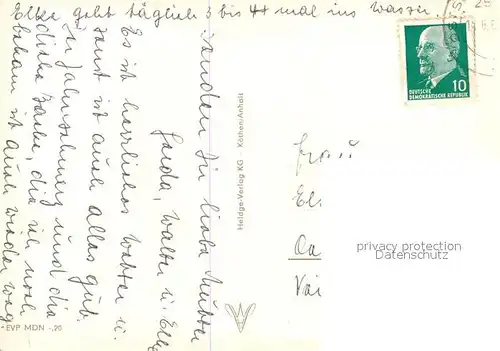 Elke geht täglich 3 bis 4x mal ins Wasser.
senden Dir liebe Mutter
Gerda, Walter u. Elke
Es ist herrliches Wetter u.
sonst ist auch alles gut.
Zahnschmerz und die
dicke Backe, die ich noch
bekam ist auch wieder weg
EVP MDN -,20
Heldge-Verlag KG Köthen/Anhalt
10
DEUTSCHE
DEMOKRATISCHE REPUBLIK
Frau
El
privacy protection
Datenschutz